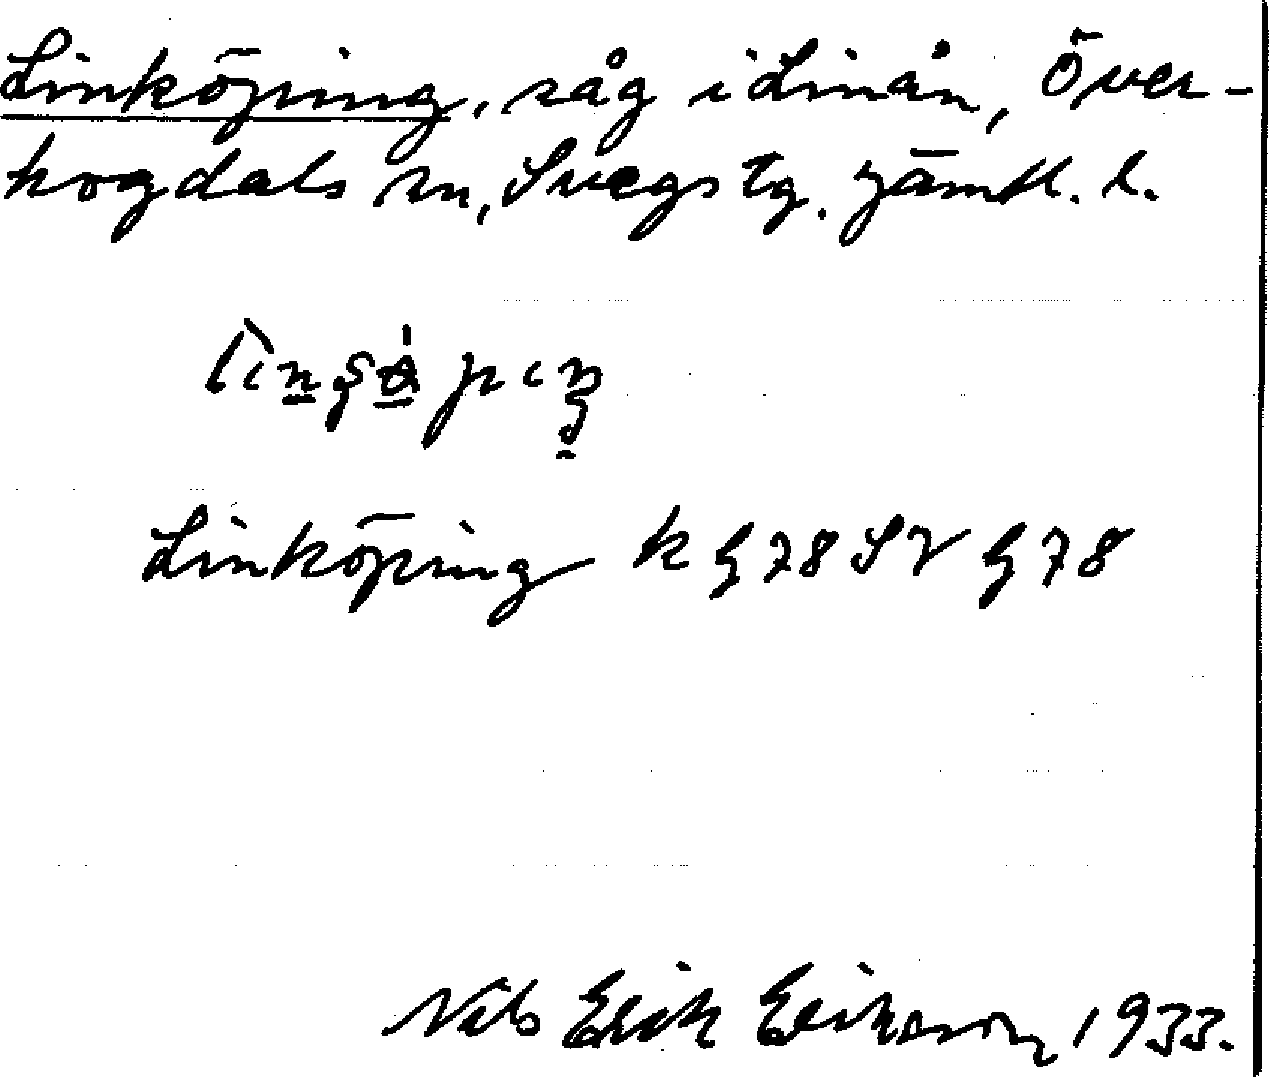 Linköping, såg i Linån, Över-
hogdals sn, Svegs tg. Jämtl. l.
Linköping k G 78 SV G 78
Nils Erik Eriksson 1933.